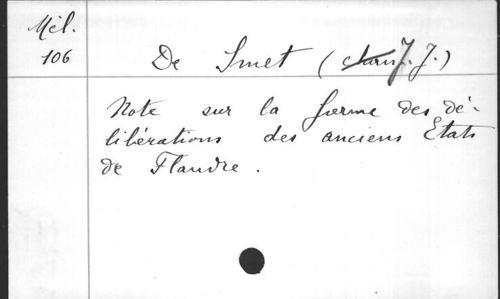 Mél.
106
De Smet (J. J.)
Note sur la forme des dé-
libérations des anciens Etats
de Flandre.